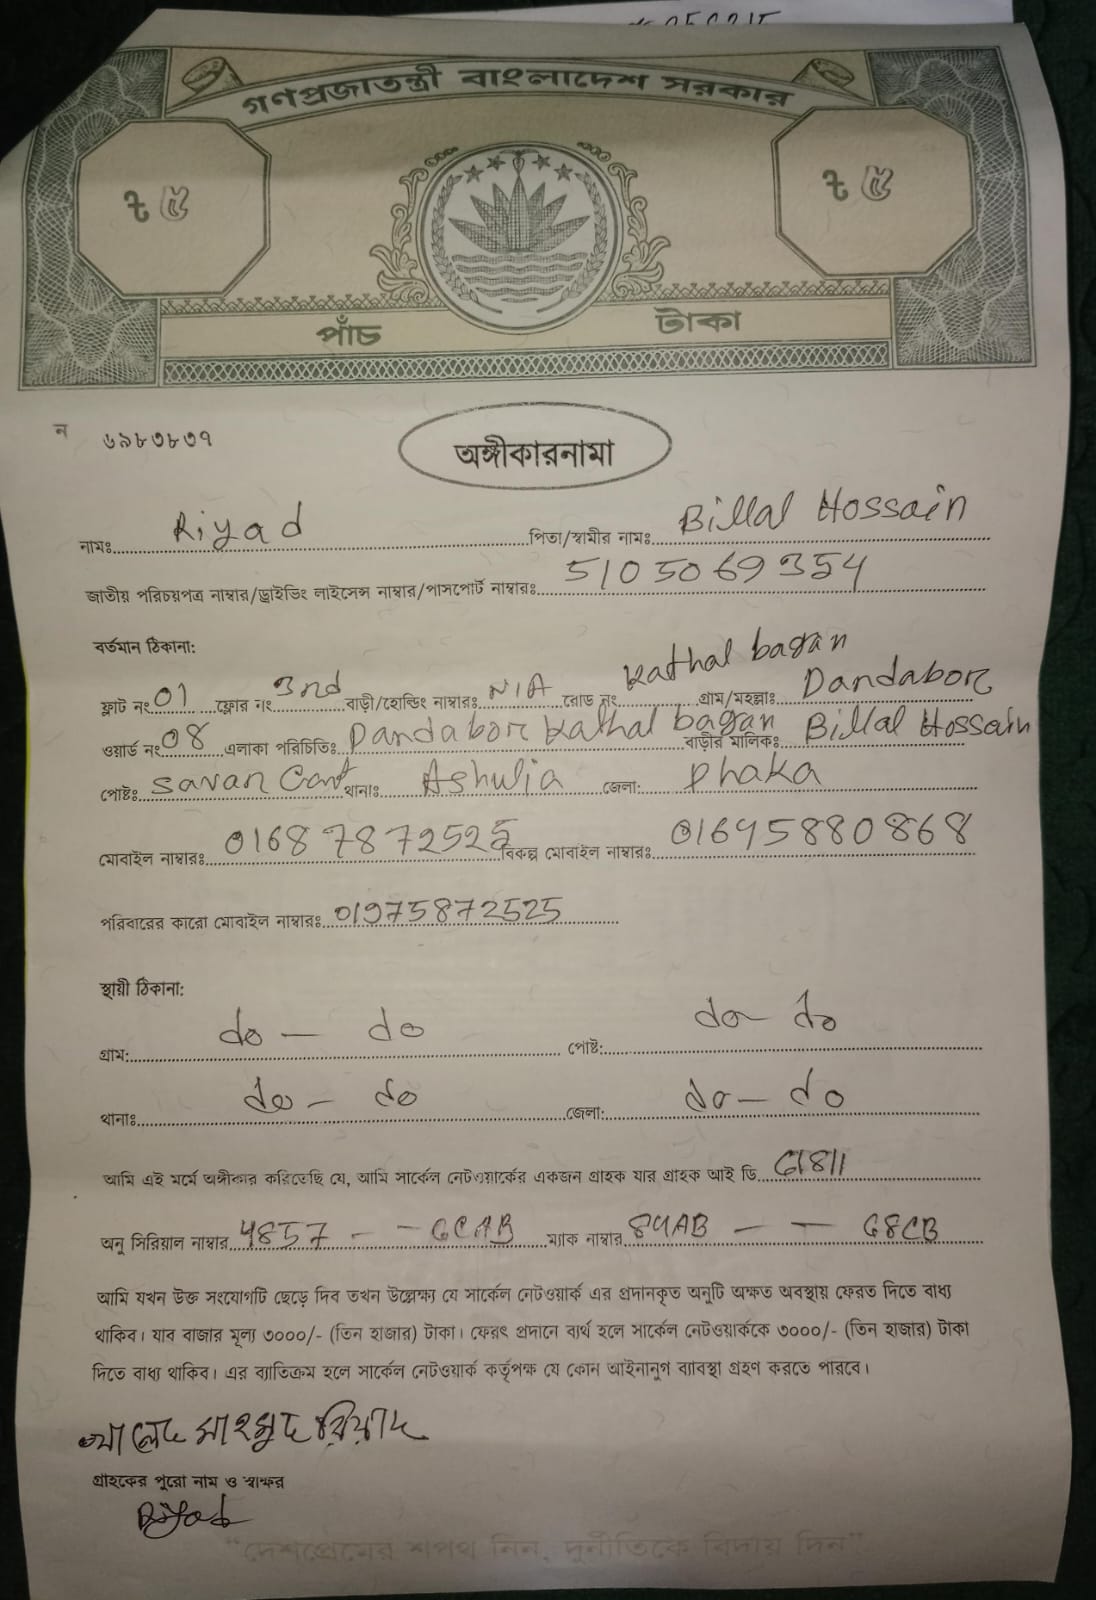 গণপ্রজাতন্ত্রী বাংলাদেশ সরকার
৳ ৫ ৳ ৫
পাঁচ টাকা
ন ৬৯৮৩৮৩৭
অঙ্গীকারনামা
নামঃ Riyad পিতা/স্বামীর নামঃ Billal Hossain
জাতীয় পরিচয়পত্র নাম্বার/ড্রাইভিং লাইসেন্স নাম্বার/পাসপোর্ট নাম্বারঃ 5105069354
বর্তমান ঠিকানা:
ফ্লাট নং 01 ফ্লোর নং 3rd বাড়ী/হোল্ডিং নাম্বারঃ N/A রোড নং Kathal bagan গ্রাম/মহল্লাঃ Dandabor
ওয়ার্ড নং 08 এলাকা পরিচিতিঃ Dandabor Kathal bagan বাড়ীর মালিকঃ Billal Hossain
পোষ্টঃ Savar Cant থানাঃ Ashulia জেলা: Dhaka
মোবাইল নাম্বারঃ 01687872525 বিকল্প মোবাইল নাম্বারঃ 01645880868
পরিবারের কারো মোবাইল নাম্বারঃ 01975872525
স্থায়ী ঠিকানা:
গ্রাম: do — do পোষ্ট: do — do
থানাঃ do — do জেলা: do — do
আমি এই মর্মে অঙ্গীকার করিতেছি যে, আমি সার্কেল নেটওয়ার্কের একজন গ্রাহক যার গ্রাহক আই ডি 61811
অনু সিরিয়াল নাম্বার 4857 - - 6CAB ম্যাক নাম্বার 84AB — — 68CB
আমি যখন উক্ত সংযোগটি ছেড়ে দিব তখন উল্লেক্ষ্য যে সার্কেল নেটওয়ার্ক এর প্রদানকৃত অনুটি অক্ষত অবস্থায় ফেরত দিতে বাধ্য
থাকিব। যাব বাজার মূল্য ৩০০০/- (তিন হাজার) টাকা। ফেরৎ প্রদানে ব্যর্থ হলে সার্কেল নেটওয়ার্ককে ৩০০০/- (তিন হাজার) টাকা
দিতে বাধ্য থাকিব। এর ব্যতিক্রম হলে সার্কেল নেটওয়ার্ক কর্তৃপক্ষ যে কোন আইনানুগ ব্যাবস্থা গ্রহণ করতে পারবে।
খালেদ মাহমুদ রিয়াদ
গ্রাহকের পুরো নাম ও স্বাক্ষর
Riyad
"দেশপ্রেমের শপথ নিন, দুর্নীতিকে বিদায় দিন"